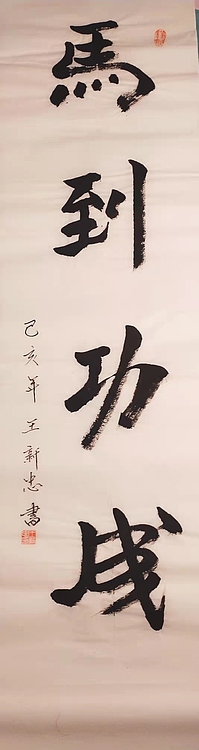 馬到功成
己亥年 王新忠書